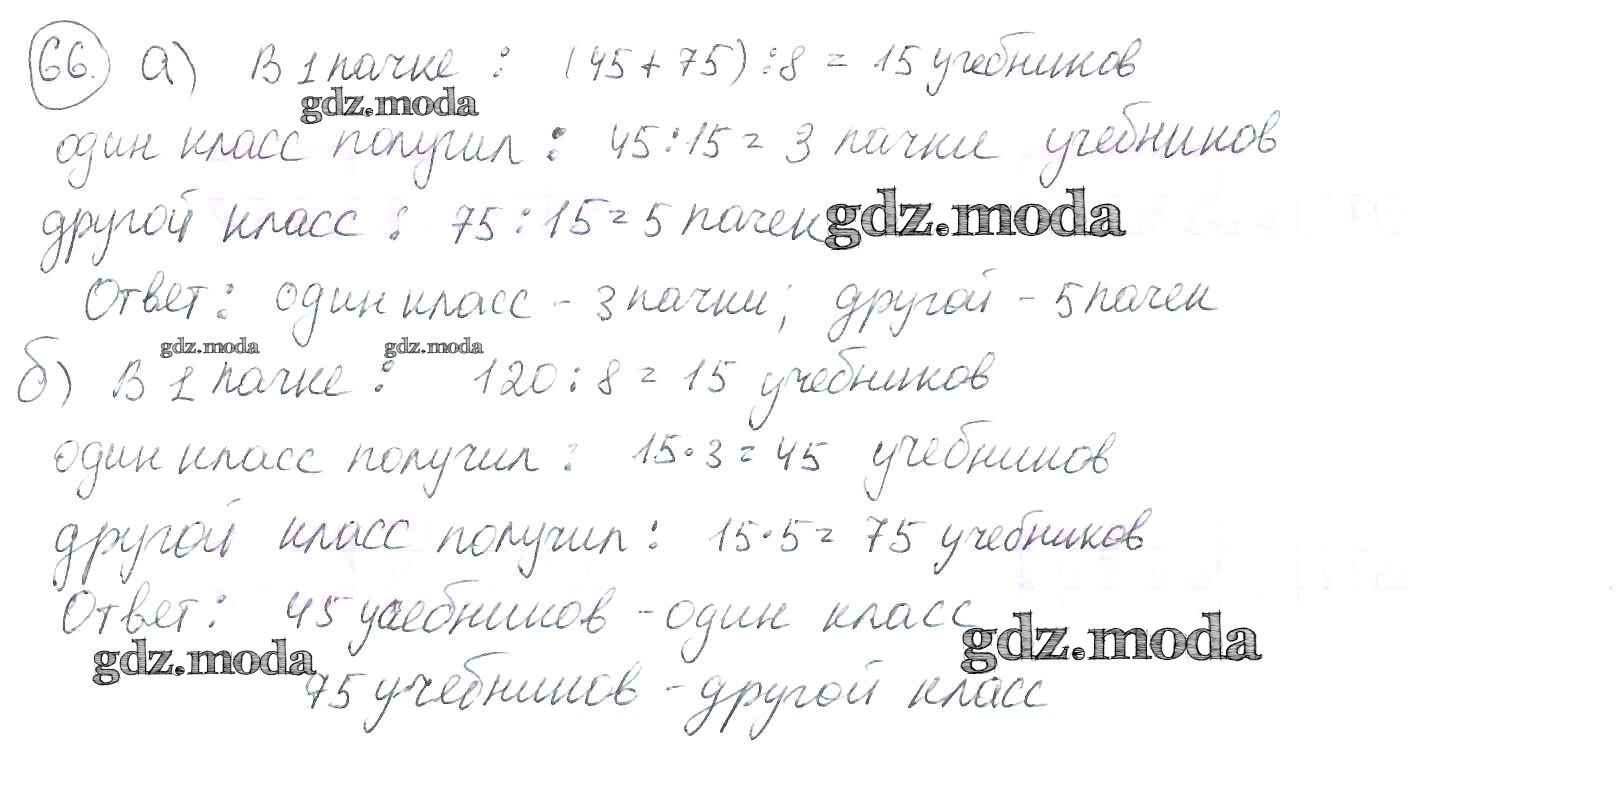 66. а) В 1 пачке : (45 + 75) : 8 = 15 учебников
gdz.moda
один класс получил : 45 : 15 = 3 пачки учебников
другой класс : 75 : 15 = 5 пачек gdz.moda
Ответ : один класс - 3 пачки; другой - 5 пачек
gdz.moda gdz.moda
б) В 1 пачке : 120 : 8 = 15 учебников
один класс получил : 15 · 3 = 45 учебников
другой класс получил : 15 · 5 = 75 учебников
Ответ : 45 учебников - один класс
gdz.moda gdz.moda
75 учебников - другой класс